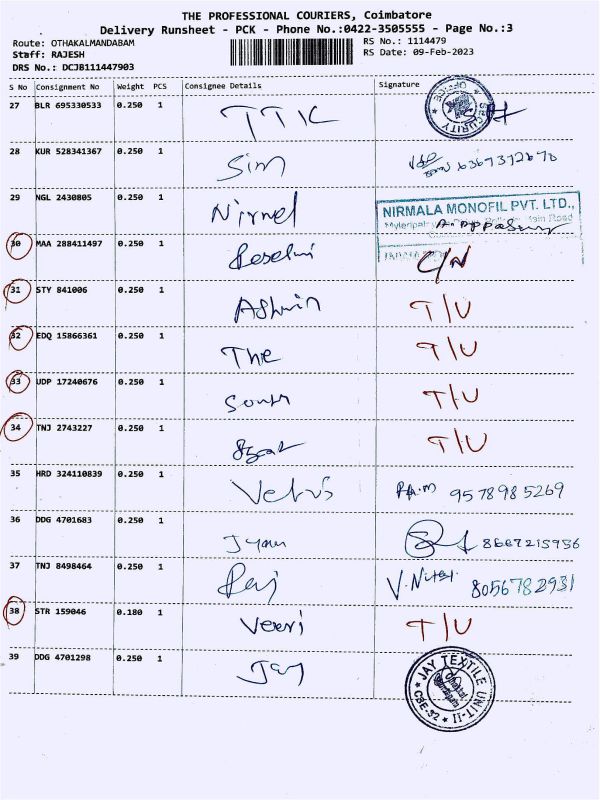 THE PROFESSIONAL COURIERS, Coimbatore
Delivery Runsheet - PCK - Phone No.:0422-3505555 - Page No.:3
Route: OTHAKALMANDABAM RS No.: 1114479
Staff: RAJESH RS Date: 09-Feb-2023
DRS No.: DCJB111447903
S No Consignment No Weight PCS Consignee Details Signature
27 BLR 695330533 0.250 1 TTK SECURITY OFFICE
28 KUR 528341367 0.250 1 Sim
29 NGL 2430805 0.250 1 Nirmel NIRMALA MONOFIL PVT. LTD.,
Main Road
30 MAA 288411497 0.250 1 C/N
31 STY 841006 0.250 1 Ashwin T/U
32 EDQ 15866361 0.250 1 The T/U
33 UDP 17240676 0.250 1 T/U
34 TNJ 2743227 0.250 1 T/U
35 HRD 324110839 0.250 1 9578985269
36 DDG 4701683 0.250 1 8667215956
37 TNJ 8498464 0.250 1 8056782931
38 STR 159046 0.180 1 Veeri T/U
39 DDG 4701298 0.250 1 Jay JAY TEXTILE UNIT-II CBE-32